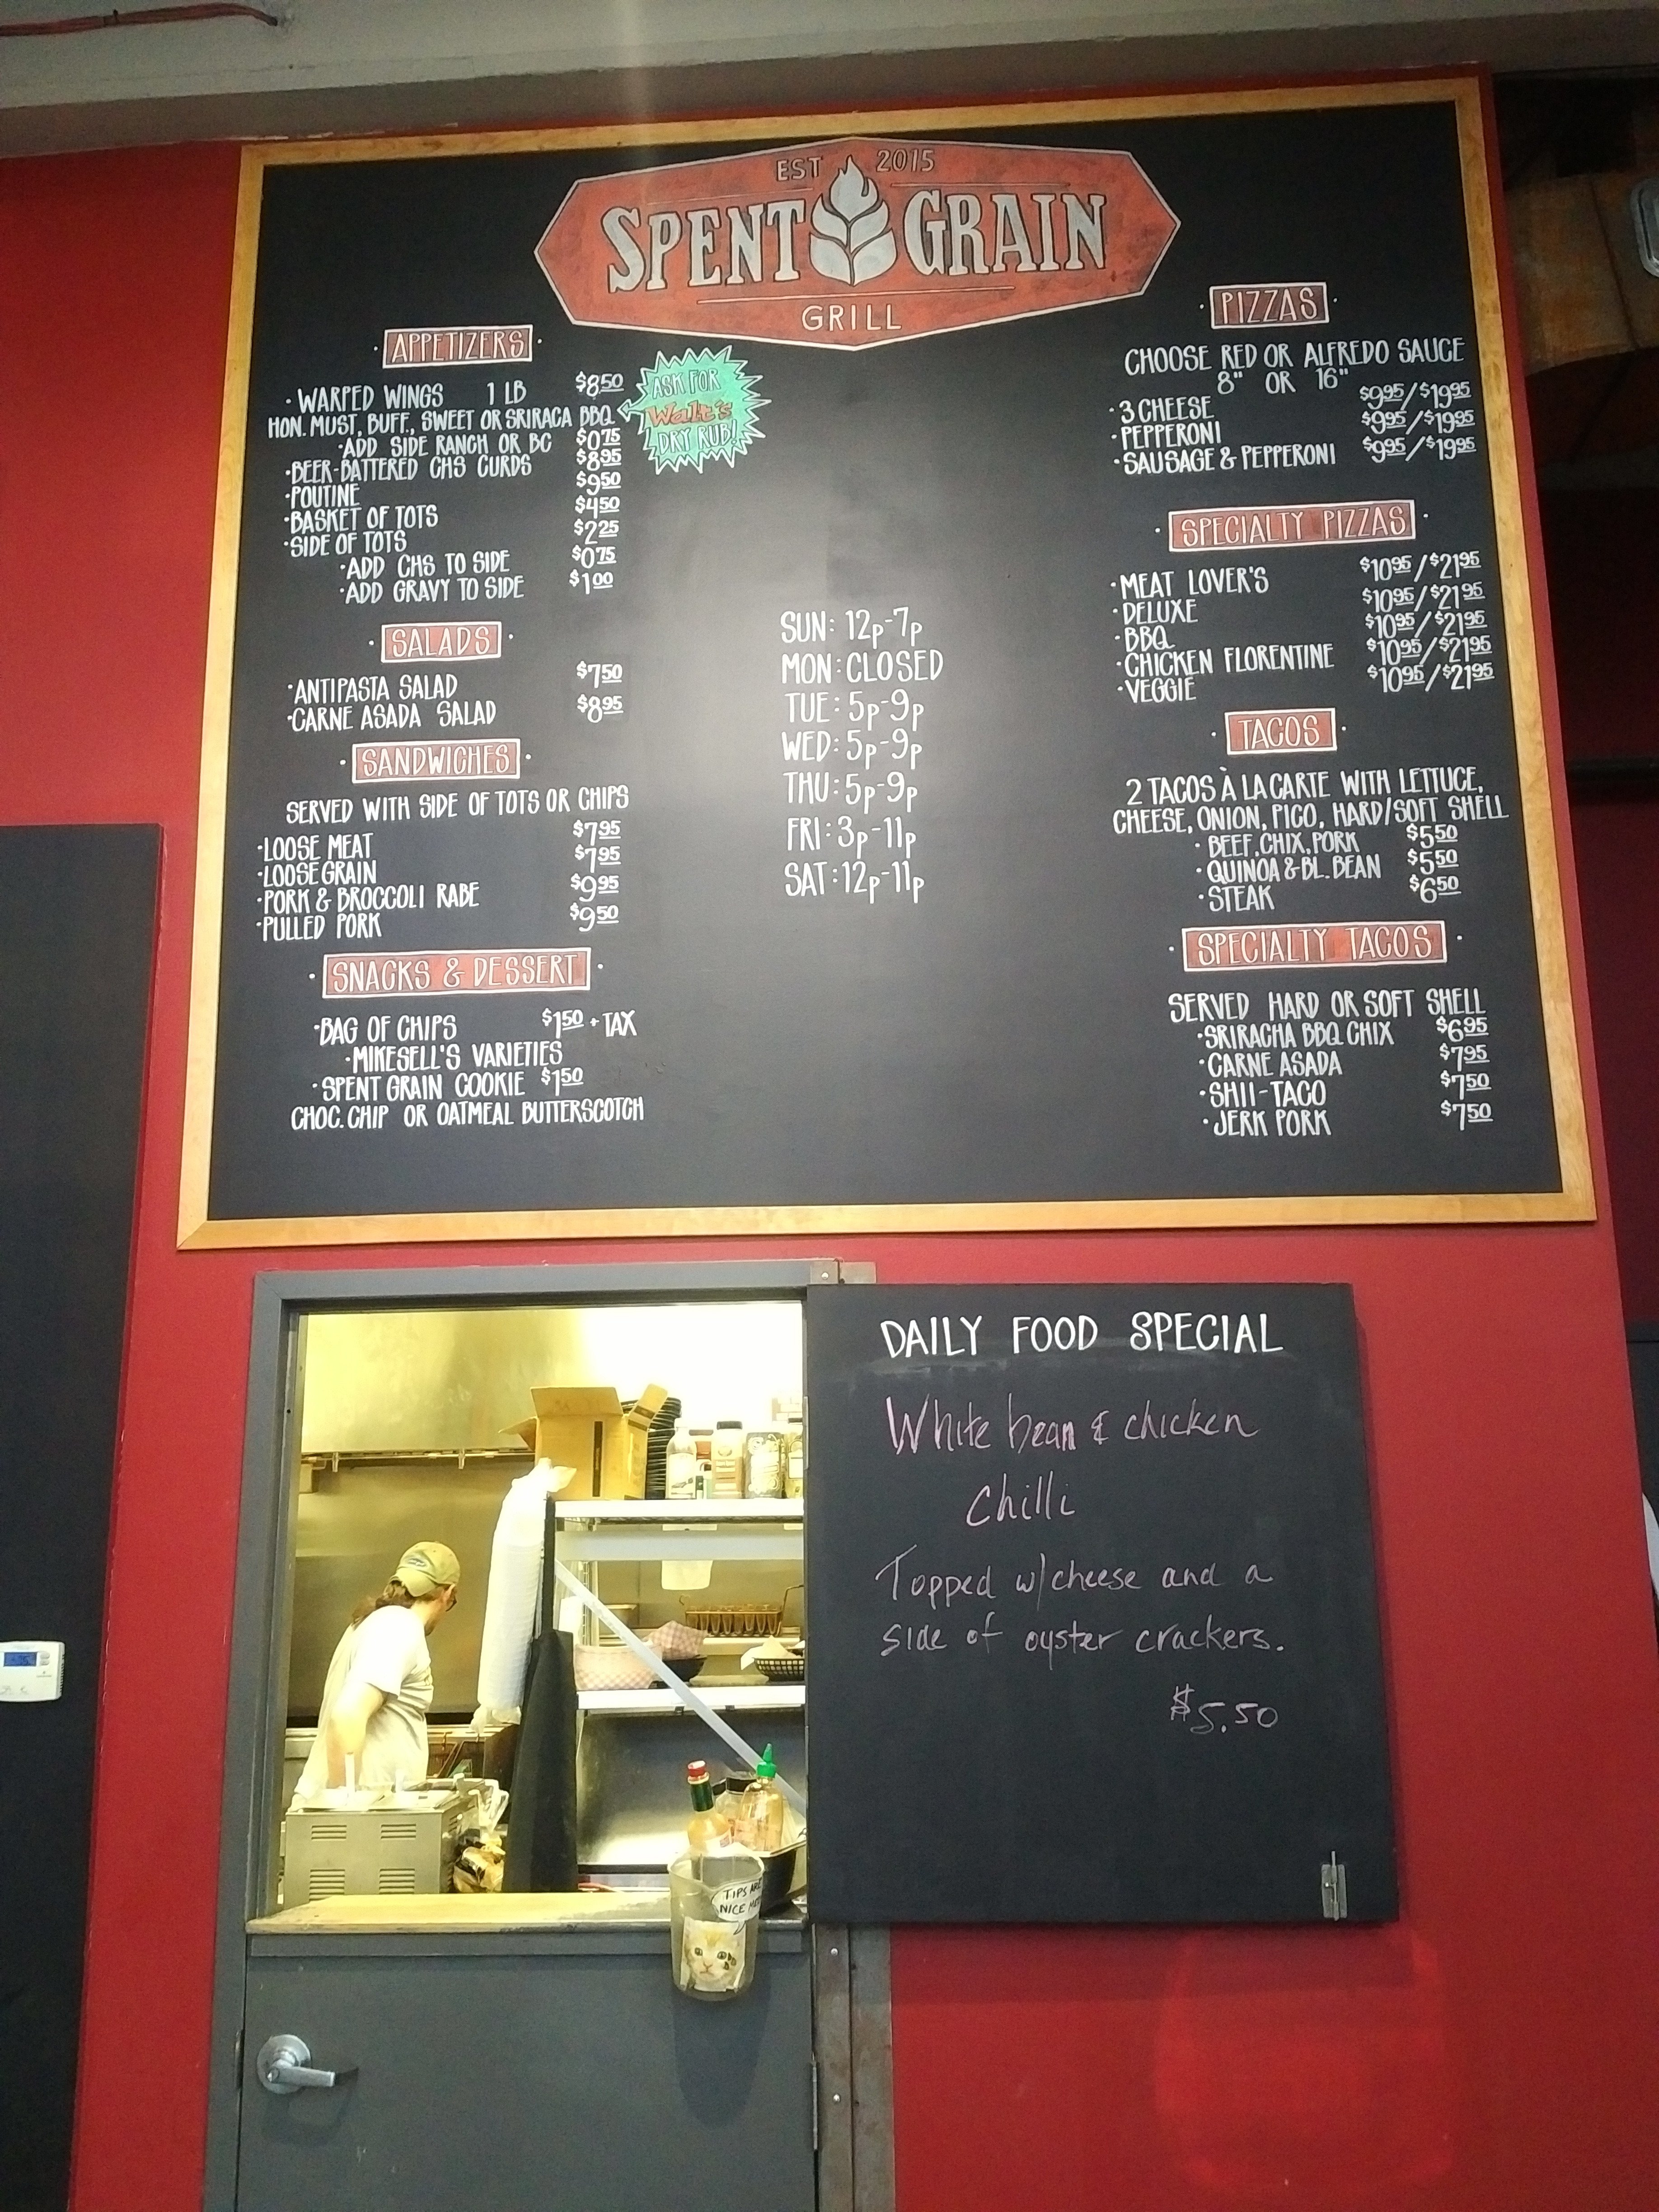 EST 2015
SPENT GRAIN
GRILL
· APPETIZERS ·
· WARPED WINGS 1 LB $8.50
HON. MUST, BUFF., SWEET OR SRIRACA BBQ
· ADD SIDE RANCH OR BC $0.75
· BEER-BATTERED CHS CURDS $8.95
· POUTINE $9.50
· BASKET OF TOTS $4.50
· SIDE OF TOTS $2.25
· ADD CHS TO SIDE $0.75
· ADD GRAVY TO SIDE $1.00
ASK FOR
Walt's
DRY RUB!
· SALADS ·
· ANTIPASTA SALAD $7.50
· CARNE ASADA SALAD $8.95
· SANDWICHES ·
SERVED WITH SIDE OF TOTS OR CHIPS
· LOOSE MEAT $7.95
· LOOSE GRAIN $7.95
· PORK & BROCCOLI RABE $9.95
· PULLED PORK $9.50
· SNACKS & DESSERT ·
· BAG OF CHIPS $1.50 + TAX
· MIKESELL'S VARIETIES
· SPENT GRAIN COOKIE $1.50
CHOC. CHIP OR OATMEAL BUTTERSCOTCH
SUN: 12p-7p
MON: CLOSED
TUE: 5p-9p
WED: 5p-9p
THU: 5p-9p
FRI: 3p-11p
SAT: 12p-11p
· PIZZAS ·
CHOOSE RED OR ALFREDO SAUCE
8" OR 16"
· 3 CHEESE $9.95/$19.95
· PEPPERONI $9.95/$19.95
· SAUSAGE & PEPPERONI $9.95/$19.95
· SPECIALTY PIZZAS ·
· MEAT LOVER'S $10.95/$21.95
· DELUXE $10.95/$21.95
· BBQ $10.95/$21.95
· CHICKEN FLORENTINE $10.95/$21.95
· VEGGIE $10.95/$21.95
· TACOS ·
2 TACOS À LA CARTE WITH LETTUCE,
CHEESE, ONION, PICO, HARD/SOFT SHELL
· BEEF, CHIX, PORK $5.50
· QUINOA & BL. BEAN $5.50
· STEAK $6.50
· SPECIALTY TACOS ·
SERVED HARD OR SOFT SHELL
· SRIRACHA BBQ CHIX $6.95
· CARNE ASADA $7.95
· SHII-TACO $7.50
· JERK PORK $7.50
DAILY FOOD SPECIAL
White bean & chicken
Chilli
Topped w/cheese and a
side of oyster crackers.
$5.50
TIPS ARE
NICE